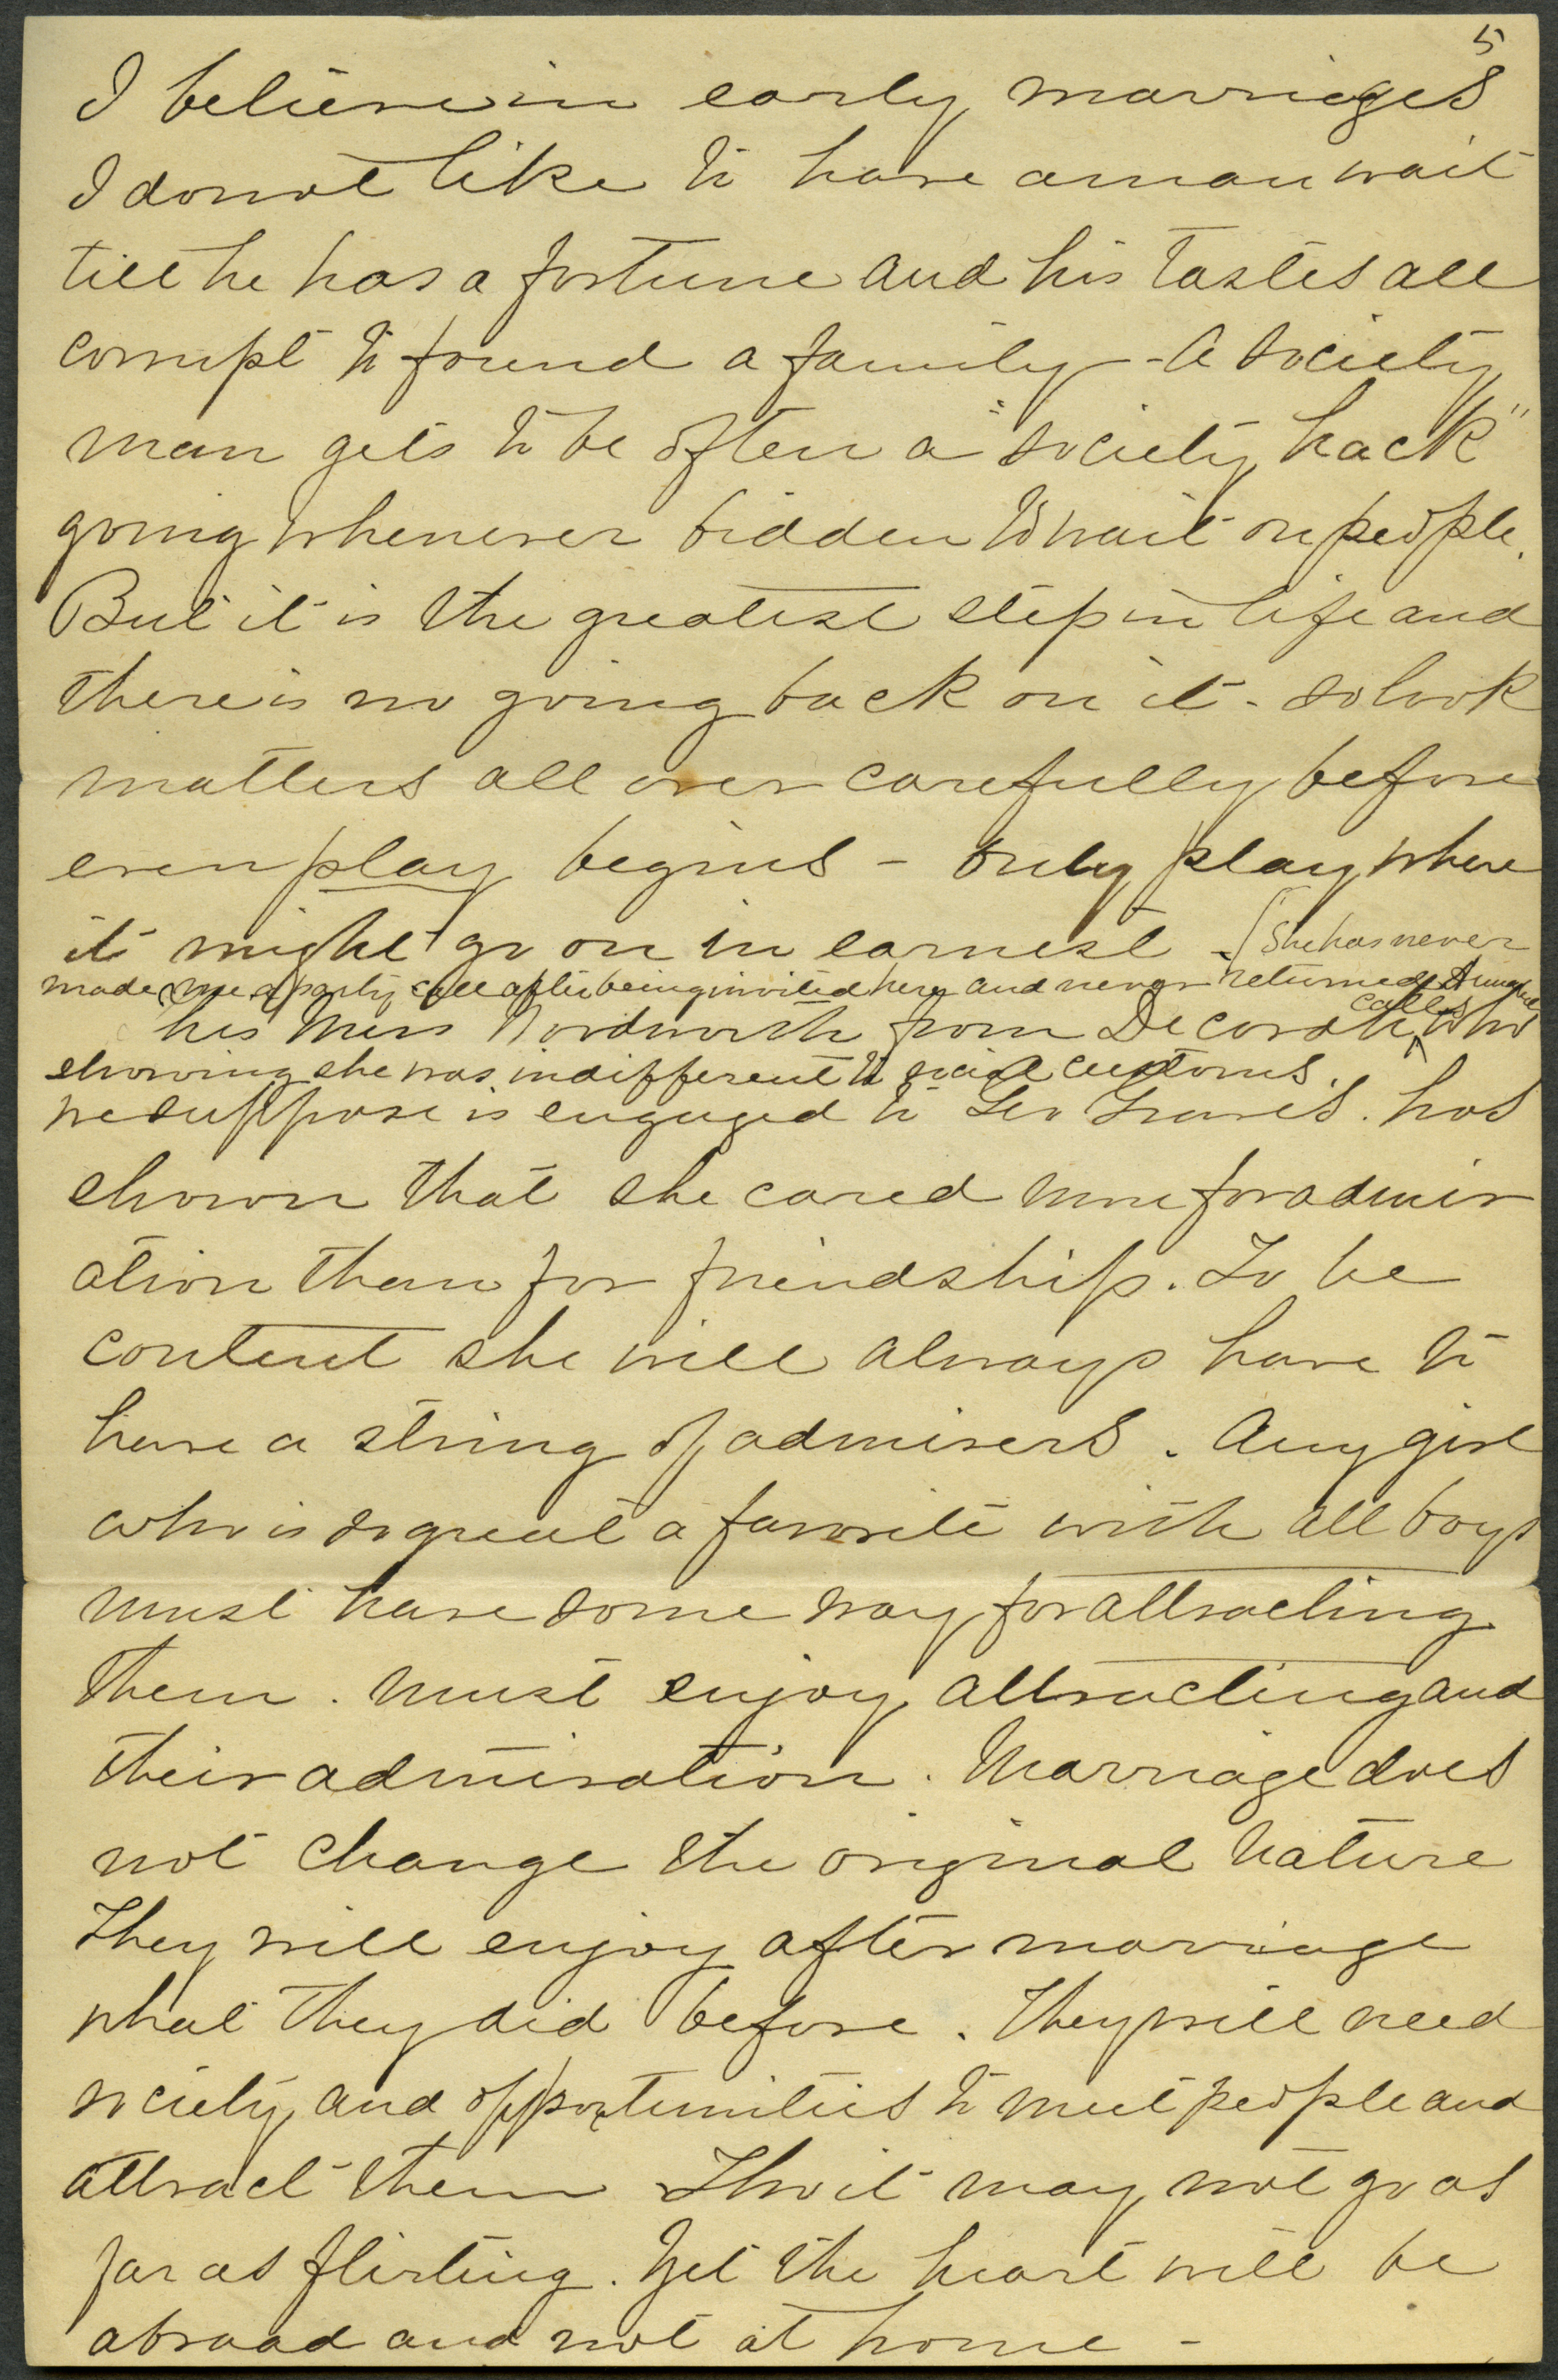 5
I believe in early marriages
I do not like to have a man wait
till he has a fortune and his tastes all
corrupt to found a family - A society
man gets to be often a "society hack"
going whenever bidden to wait on people.
But it is the greatest step in life and
there is no going back on it - so look
matters all over carefully before
even play begins - only play where
it might go on in earnest - (She has never
made me a party call after being invited here and never returned
calls
his Miss Nordworth from Decorah, who
showing she was indifferent to social customs.
we suppose is engaged to Geo Graves. has
shown that she cared more for admir
ation than for friendship. To be
content she will always have to
have a string of admirers. Any girl
who is so great a favorite with all boys
must have some way for attracting
them. must enjoy attracting and
their admiration. Marriage does
not change the original nature
They will enjoy after marriage
what they did before. They will need
society and opportunities to meet people and
attract them Tho it may not go as
far as flirting. Yet the heart will be
abroad and not at home -